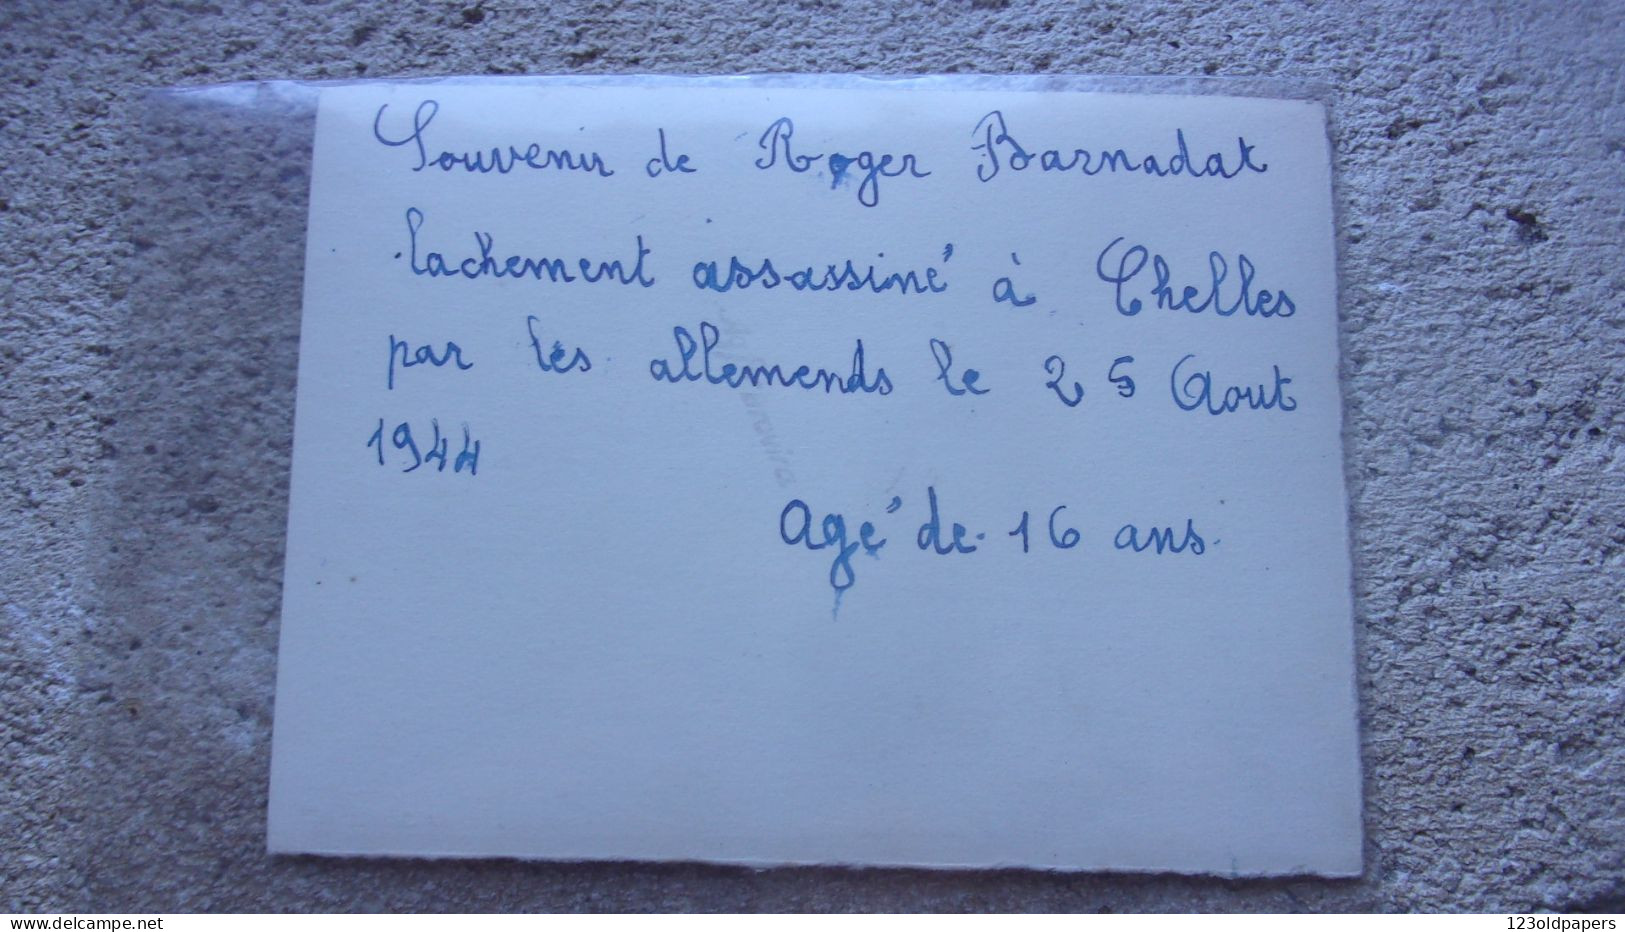 Souvenir de Roger Barnadat
lachement assassiné à Chelles
par les allemends le 25 Aout
1944
Agé de 16 ans.
delcampe.net
123oldpapers